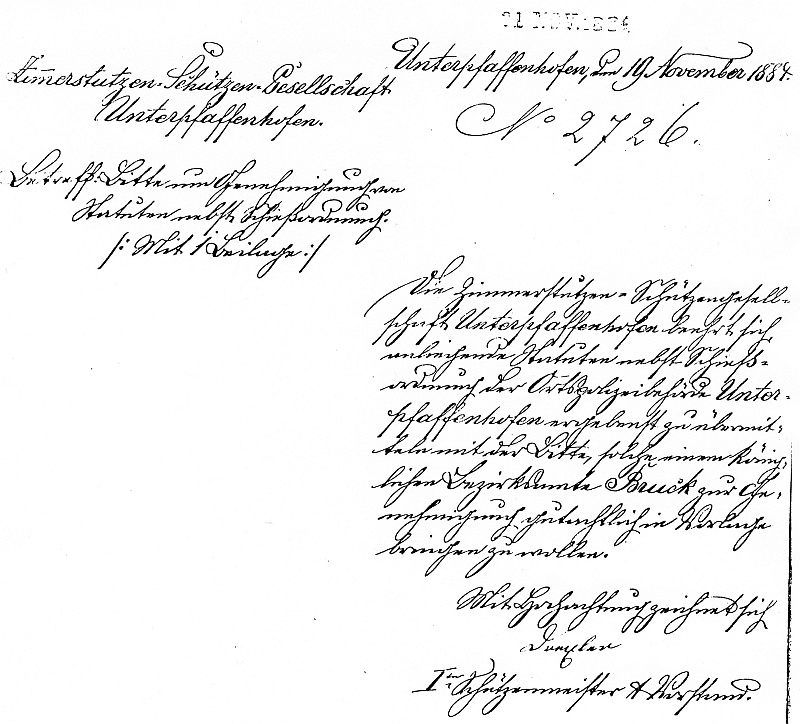 21 NOV. 1884
Zimmerstutzen-Schützen-Gesellschaft
Unterpfaffenhofen.
Unterpfaffenhofen, den 19 November 1884.
No 2726.
Betreff: Bitte um Genehmigung von
Statuten nebst Schießordnung.
/: Mit 1 Beilage :/
Die Zimmerstutzen-Schützengesell-
schaft Unterpfaffenhofen beehrt sich
anliegende Statuten nebst Schieß-
ordnung der Ortspolizeibehörde Unter-
pfaffenhofen ergebenst zu übermit-
teln mit der Bitte, solche einem König-
lichen Bezirksamte Bruck zur Ge-
nehmigung gutachtlich in Vorlage
bringen zu wollen.
Mit Hochachtung zeichnet sich
Drexler
Iter Schützenmeister & Vorstand.